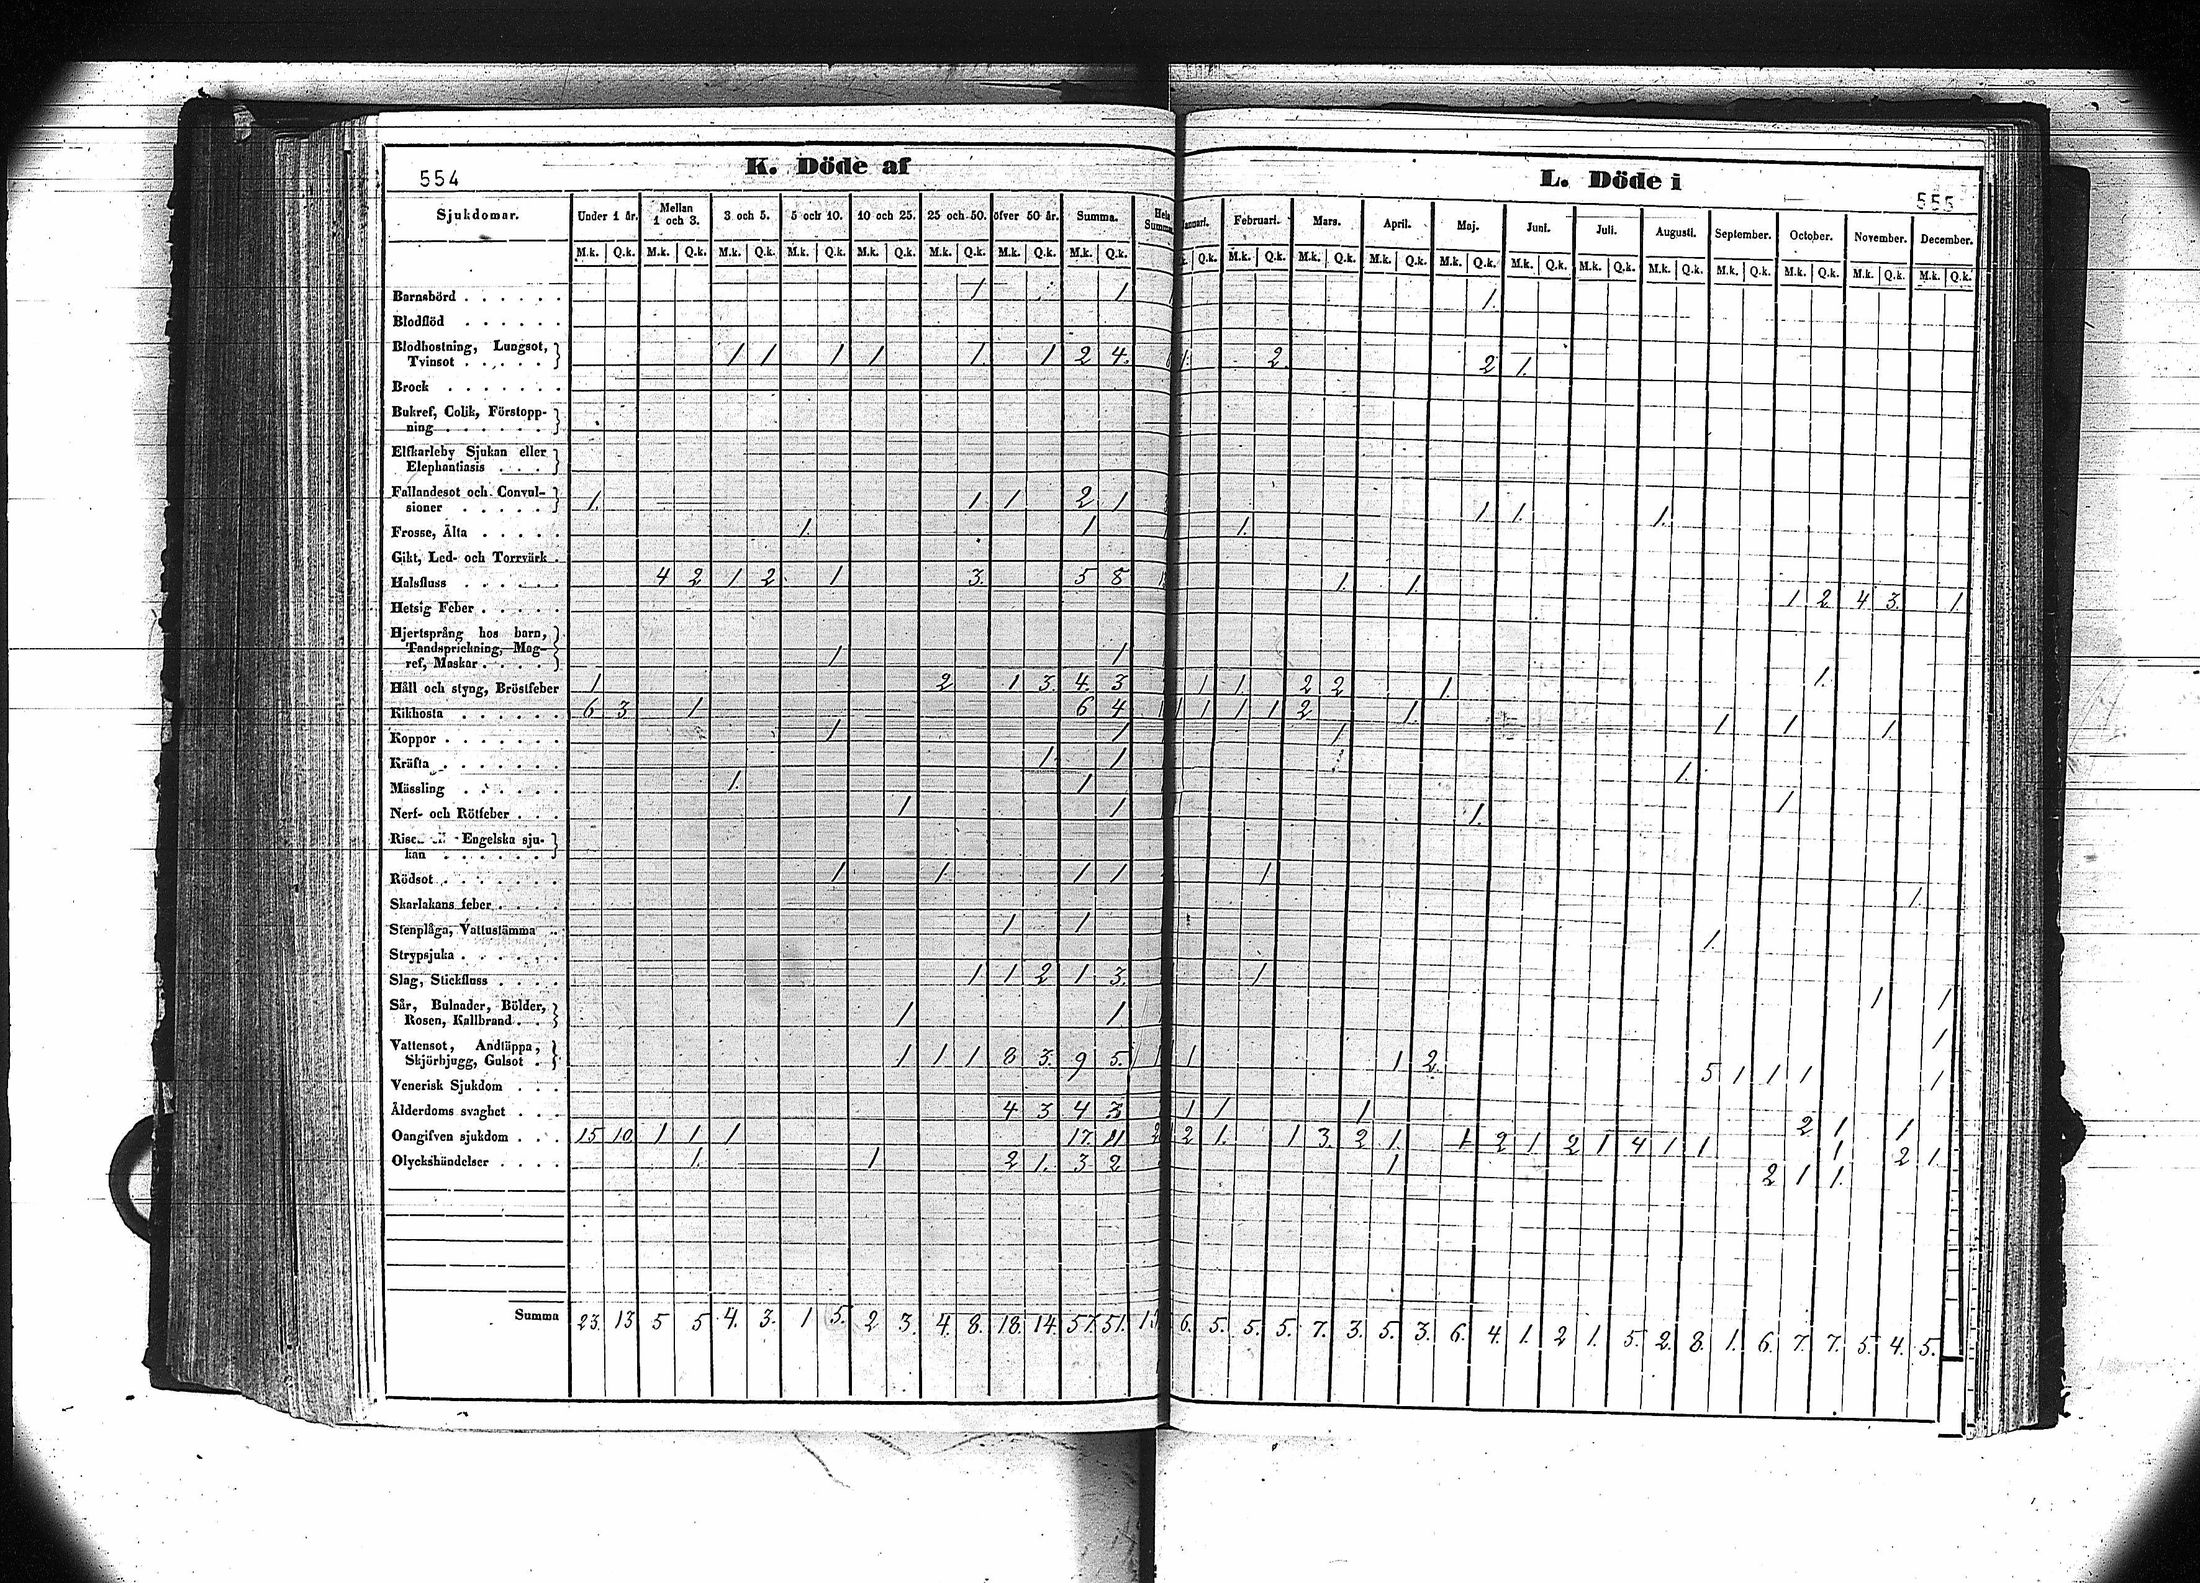 K. Döde af
554
Sjukdomar. Under 1 år. Mellan 1 och 3. 3 och 5. 5 och 10. 10 och 25. 25 och 50. öfver 50 år. Summa. Hela Summa
M.k. Q.k. M.k. Q.k. M.k. Q.k. M.k. Q.k. M.k. Q.k. M.k. Q.k. M.k. Q.k. M.k. Q.k.
Barnsbörd 1 1
Blodflöd
Blodhostning, Lungsot,
Tvinsot 1 1 1 1 1. 1 2 4.
Brock
Bukref, Colik, Förstopp-
ning
Elfkarleby Sjukan eller
Elephantiasis
Fallandesot och Convul-
sioner 1. 1 1 2 1
Frosse, Älta 1. 1
Gikt, Led- och Torrvärk
Halsfluss 4 2 1 2 1 3. 5 8
Hetsig Feber
Hjertsprång hos barn,
Tandsprickning, Mag-
ref, Maskar 1 1
Håll och styng, Bröstfeber 1 2 1 3. 4. 3
Kikhosta 6 3 1 6 4
Koppor 1 1
Kräfta 1 1
Mässling 1. 1
Nerf- och Rötfeber 1 1
Engelska sju-
kan
Rödsot 1 1. 1 1
Skarlakans feber
Stenplåga, Vattustämma 1 1
Strypsjuka
Slag, Stickfluss 1 1 2 1 3.
Sår, Bulnader, Bölder,
Rosen, Kallbrand 1 1
Vattensot, Andtäppa,
Skjörbjugg, Gulsot 1 1 1 8 3. 9 5.
Venerisk Sjukdom
Ålderdoms svaghet 4 3 4 3
Oangifven sjukdom 15 10 1 1 1 17. 11
Olyckshändelser 1. 1 2 1. 3 2
Summa 23. 13 5 5 4. 3. 1 5. 2 3. 4. 8. 18. 14. 57. 51.
L. Döde i
555
Januari. Februari. Mars. April. Maj. Juni. Juli. Augusti. September. October. November. December.
Q.k. M.k. Q.k. M.k. Q.k. M.k. Q.k. M.k. Q.k. M.k. Q.k. M.k. Q.k. M.k. Q.k. M.k. Q.k. M.k. Q.k. M.k. Q.k. M.k. Q.k.
1.
1. 2. 2 1.
1 1. 1.
1.
1. 1. 1 2 4 3. 1.
1 1 2 2 1. 1.
1 1 1 1 2 1. 1 1 1.
1
1.
1
1.
1 1.
1.
1 1 1
1
1 1 2 5 1 1 1 1
1 1 1 2 1 1
2 1. 1 3. 2 1. 1 2 1 2 1 4 1 1 1 2 1.
1 2 1 1.
6. 5. 5. 5. 7. 3. 5. 3. 6. 4. 1. 2 1. 5. 2. 8. 1. 6. 7. 7. 5. 4. 5.